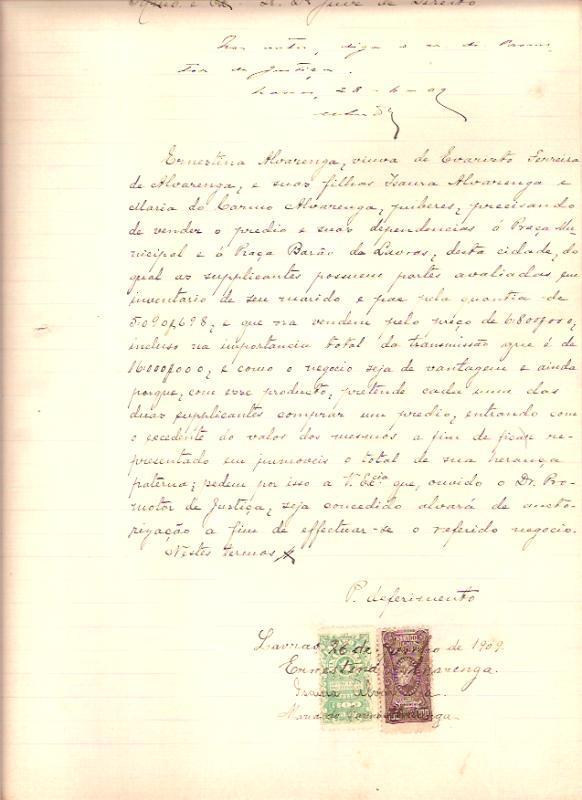 Illmo. e Ex. Sr. Dr. Juiz de Direito
diga o sr. dr. Promo
tor da Justiça.
Lavras, 28-6-09
Ernestina Alvarenga, viuva de Evaristo Ferreira
de Alvarenga, e suas filhas Isaura Alvarenga e
Maria do Carmo Alvarenga, puberes, precisando
de vender o predio e suas dependencias á Praça Mu-
nicipal e á Praça Barão de Lavras, desta cidade, do
qual as supplicantes possuem partes avaliadas em
inventario de seu marido e pae pela quantia de
5:090$698, e que ora vendem pelo preço de 6:800$000,
incluso na importancia total da transmissão que é de
16:000$000, e como o negocio seja de vantagem e ainda
porque, com esse producto, pretende cada uma das
duas supplicantes comprar um predio, entrando com
o excedente do valor dos mesmos a fim de ficar re-
presentado em immoveis o total de sua herança
paterna; pedem por isso a V. Ex.cia que, ouvido o Dr. Pro-
motor de Justiça, seja concedido alvará de aucto-
rização a fim de effectuar-se o referido negocio.
Nestes termos
P. deferimento
Lavras 26 de de 1909.
Ernestina Alvarenga.
Isaura Alvarenga.
Maria do Carmo Alvarenga.